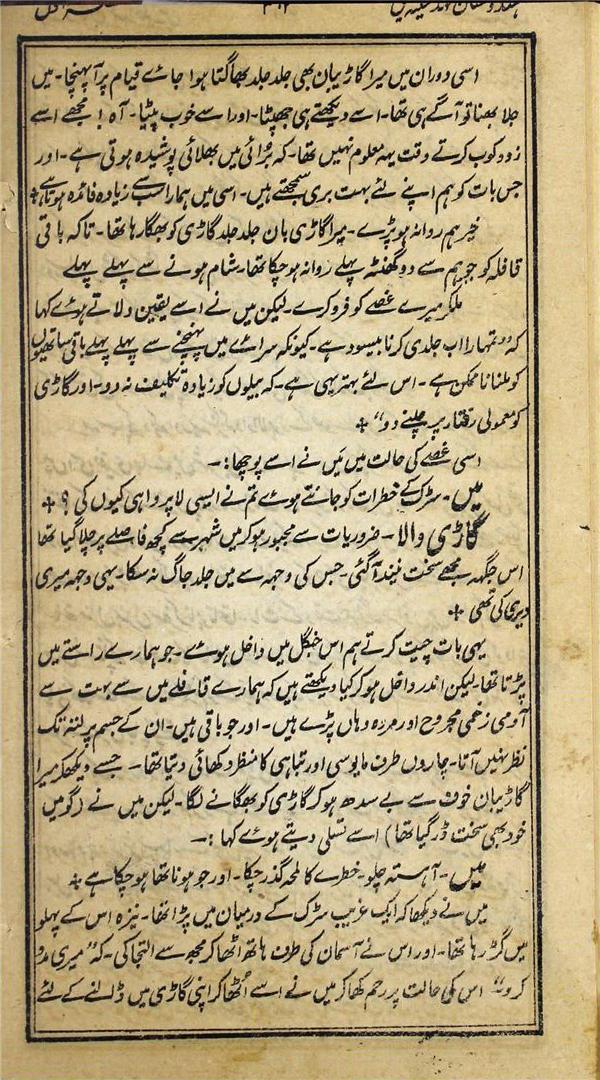 اسی دوران میں میرا گاڑیبان بھی جلد جلد بھاگتا ہوا جائے قیام پر آپہنچا۔ میں
جلا بھنا تو آگے ہی تھا۔ اسے دیکھتے ہی جھپٹا۔ اور اسے خوب پیٹا۔ آہ! مجھے اسے
زود کوب کرتے وقت یہہ معلوم نہیں تھا۔ کہ بُرائی میں بھلائی پوشیدہ ہوتی ہے۔ اور
جس بات کو ہم اپنے لئے بہت بری سمجھتے ہیں۔ اسی میں ہمارا سب سے زیادہ فائدہ ہوتا ہے +
خیر ہم روانہ ہو پڑے۔ میرا گاڑی بان جلد جلد گاڑی کو بھگا رہا تھا۔ تاکہ باقی
قافلہ کو جو ہم سے دو گھنٹہ پہلے روانہ ہو چکا تھا۔ شام ہونے سے پہلے پہلے
ملکر میرے غصے کو فرو کرے۔ لیکن میں نے اسے یقین دلاتے ہوئے کہا
کہ "تمہارا اب جلدی کرنا بیسود ہے۔ کیونکہ سرائے میں پہنچنے سے پہلے پہلے باقی ساتھیوں
کو ملنا ناممکن ہے۔ اس لئے بہتر یہی ہے۔ کہ بیلوں کو زیادہ تکلیف نہ دو۔ اور گاڑی
کو معمولی رفتار پر چلنے دو" +
اسی غصے کی حالت میں مَیں نے اسے پوچھا:۔
میں۔ سڑک کے خطرات کو جانتے ہوئے تم نے ایسی لاپرواہی کیوں کی؟ +
گاڑی والا۔ ضروریات سے مجبور ہوکر میں شہر سے کچھ فاصلے پر چلا گیا تھا
اس جگہہ مجھے سخت نیند آگئی۔ جس کی وجہہ سے میں جلد جاگ نہ سکا۔ یہی وجہ میری
دیری کی تھی +
یہی بات چیت کرتے ہم اس جنگل میں داخل ہوئے۔ جو ہمارے راستے میں
پڑتا تھا۔ لیکن اندر داخل ہو کر کیا دیکھتے ہیں کہ ہمارے قافلے میں سے بہت سے
آدمی زخمی مجروح اور مردہ وہاں پڑے ہیں۔ اور جو باقی ہیں۔ ان کے جسم پر لتہ تک
نظر نہیں آتا۔ چاروں طرف مایوسی اور تباہی کا منظر دکھائی دیتا تھا۔ جسے دیکھکر میرا
گاڑیبان خوف سے بے سدھ ہو کر گاڑی کو بھگانے لگا۔ لیکن میں نے (گو میں
خود بھی سخت ڈر گیا تھا) اسے تسلی دیتے ہوئے کہا:۔
میں۔ آہستہ چلو۔ خطرے کا لمحہ گذر چکا۔ اور جو ہونا تھا ہو چکا ہے +
میں نے دیکھا کہ ایک غریب سڑک کے درمیان میں پڑا تھا۔ نیزہ اس کے پہلو
میں گڑ رہا تھا۔ اور اس نے آسمان کی طرف ہاتھ اٹھا کر مجھ سے التجا کی۔ کہ "میری مدد
کرو" اس کی حالت پر رحم کھا کر میں نے اسے اُٹھا کر اپنی گاڑی میں ڈالنے کے لئے